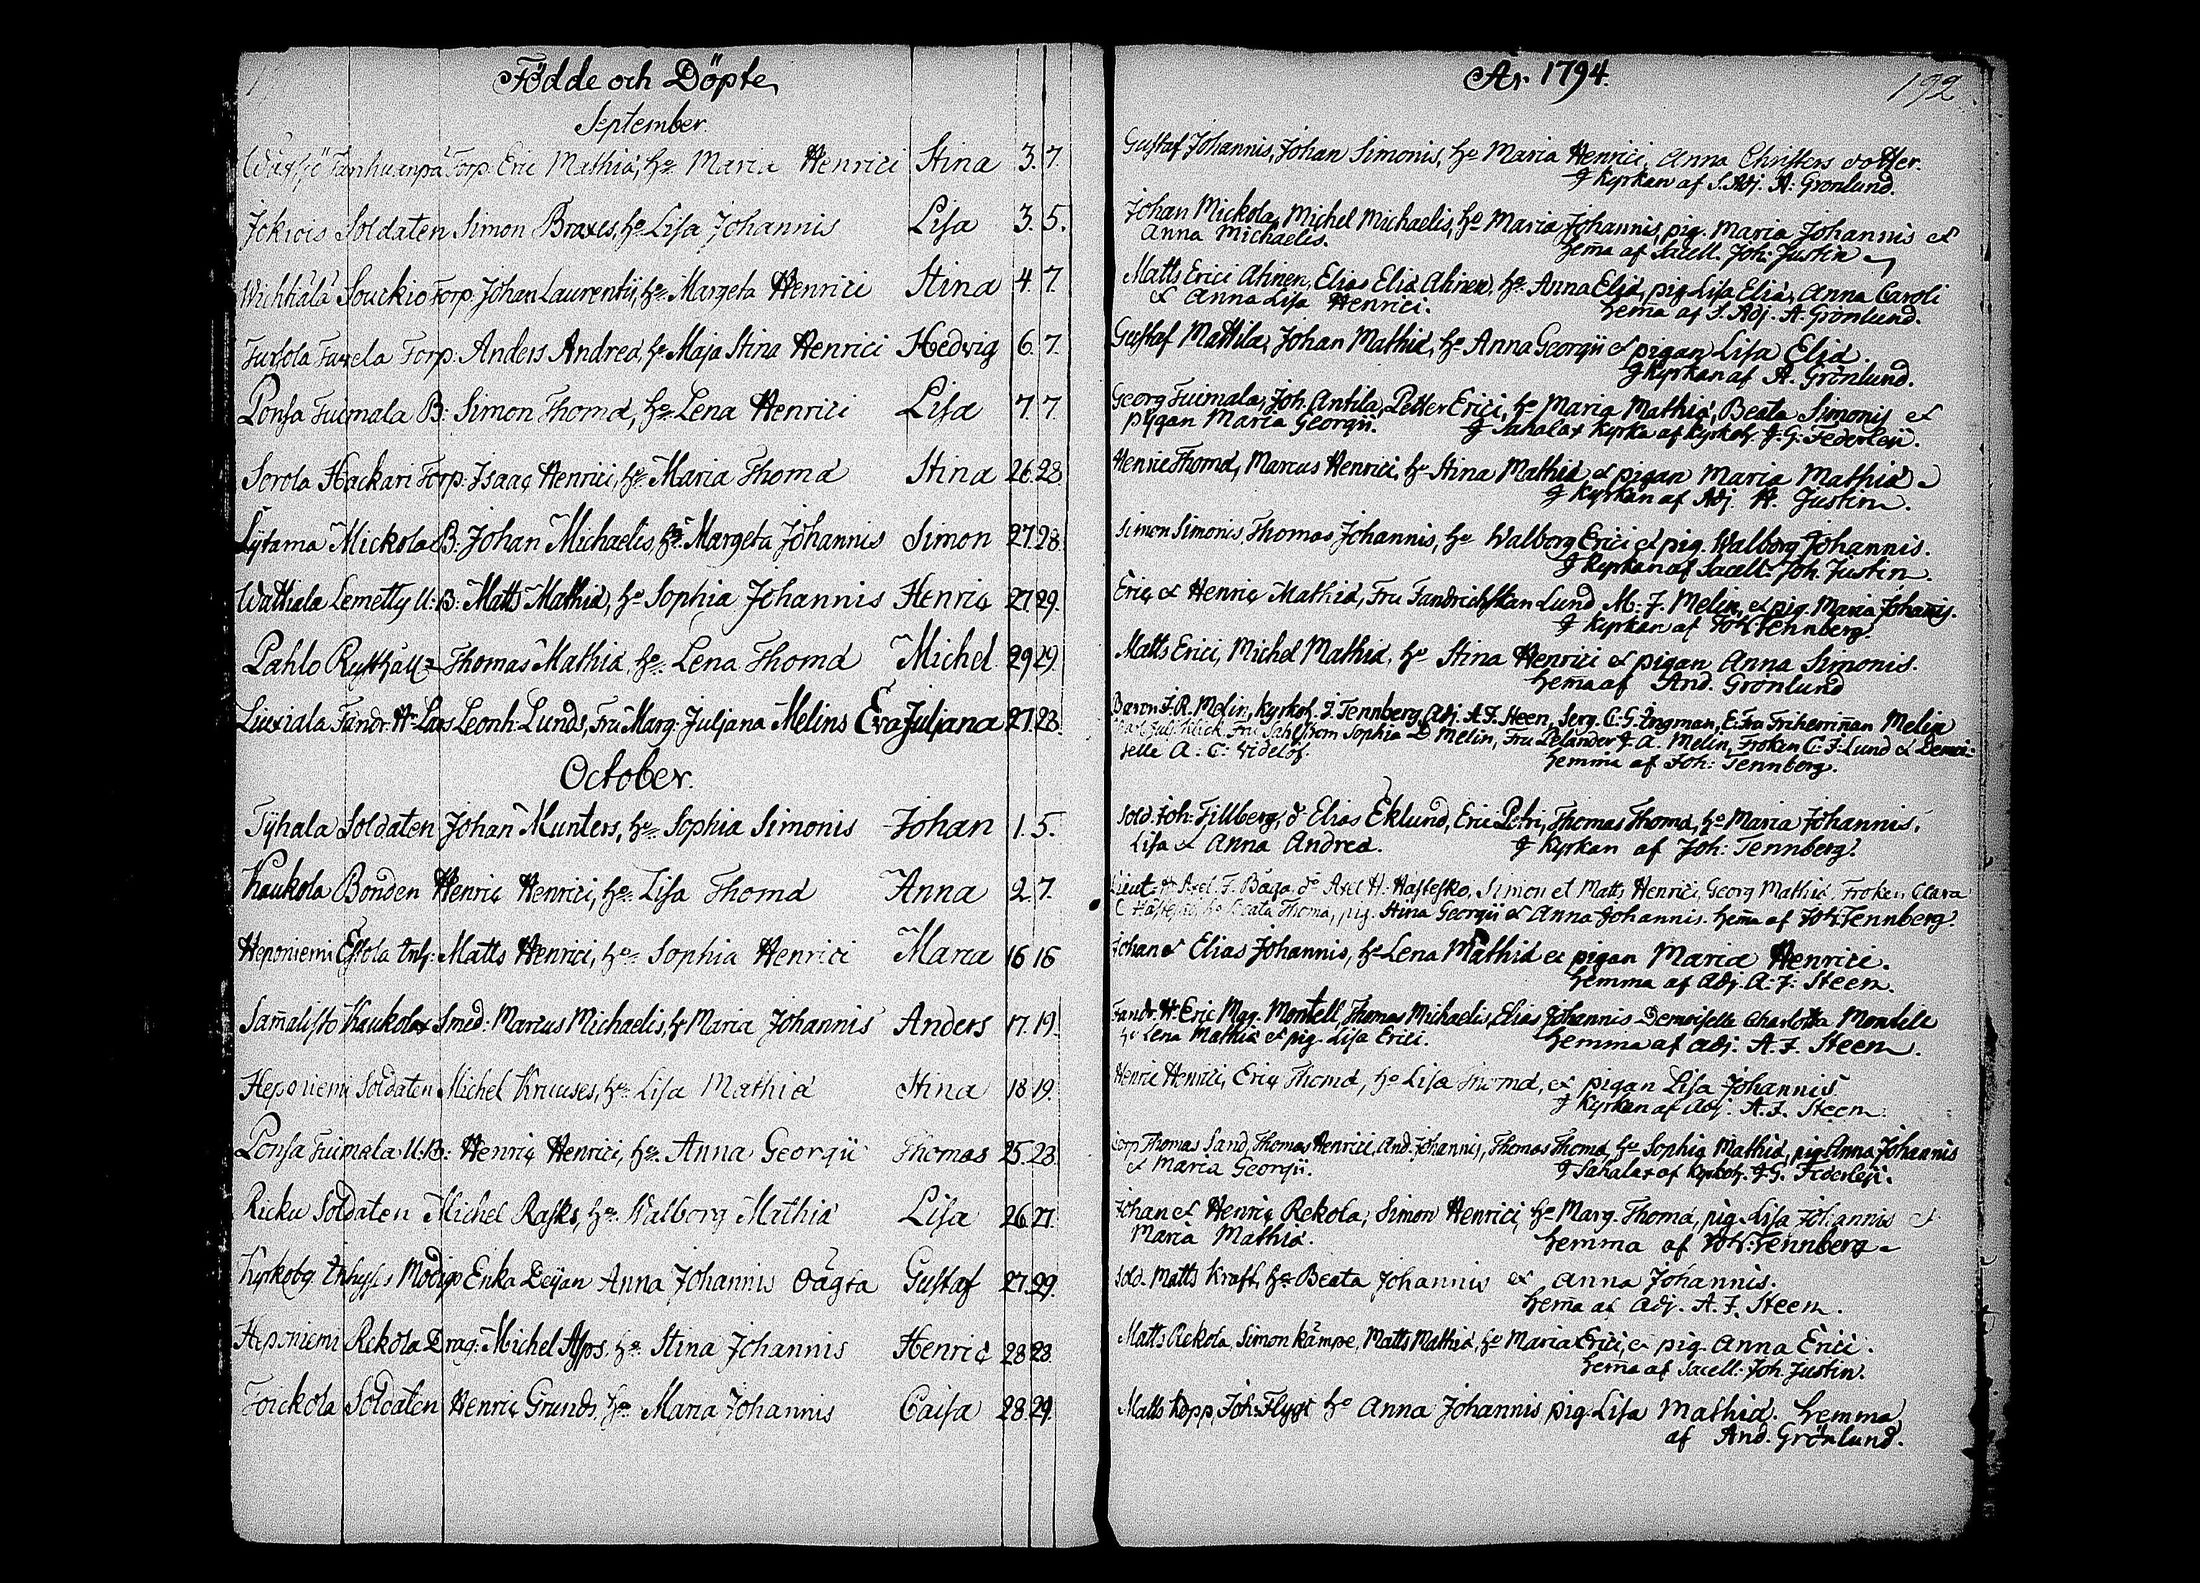 Födde och Döpte
September.
Torp. Eric Mathiæ, hu. Maria Henrici Stina 3. 7.
Jokiois Soldaten Simon Braxes, hu. Lisa Johannis Lisa 3. 5.
Wichtiälä Souckio Torp. Johan Laurentii, hu. Margeta Henrici Stina 4. 7.
Torp. Anders Andreæ, hu. Maja Stina Henrici Hedvig 6. 7.
Ponsa Tuimala B: Simon Thomæ, hu. Lena Henrici Lisa 7. 7.
Sorola Hackari Torp. Isaac Henrici, hu. Maria Thomæ Stina 26. 28
Lytama Mickola B: Johan Michaelis, hu. Margeta Johannis Simon 27. 28.
Wathiala Lemetty U: B: Matts Mathiæ, hu. Sophia Johannis Henric 27. 29.
Pahlo Thomas Mathiæ, hu. Lena Thomæ Michel 29. 29.
Liuxiala Fändr. Hr Lars Leonh. Lunds, Fru Marg. Juljana Melins Eva Juljana 27. 28.
October.
Tÿhala Soldaten Johan Munters, hu. Sophia Simonis Johan 1. 5.
Kaukola Bonden Henric Henrici, hu. Lisa Thomæ Anna 2. 7.
Heponiemi Eskola Inh: Matts Henrici, hu. Sophia Henrici Maria 16 16
Kaukola Smed: Marcus Michaelis, hu Maria Johannis Anders 17. 19.
Heponiemi Soldaten Michel Kruuses, hu. Lisa Mathiæ Stina 18 19.
Ponsa Tuimala U: B: Henric Henrici, hu. Anna Georgii Thomas 25. 28.
Ricku Soldaten Michel Rasks, hu. Walborg Mathiæ Lisa 26. 27.
Kyrkobg. Enka Anna Johannis Oägta Gustaf 27. 29.
Heponiemi Rekola Drag: Michel Asps, hu. Stina Johannis Henric 28 28.
Toickola Soldaten Henric Grunds, hu. Maria Johannis Caisa 28. 29.
År 1794.
192
Gustaf Johannis, Johan Simonis, hu Maria Henrici, Anna Christers dotter.
J kyrkan af S. Adj. A: Grönlund.
Johan Mickola, Michel Michaelis, hu Maria Johannis, pig. Maria Johannis et
Anna Michaelis. hema af Sacell. Joh: Justin
Matts Erici Ahinen, Elias Eliæ Ahinen, hu. Anna Eliæ, pig. Lisa Eliæ, Anna Caroli
et Anna Lisa Henrici. hema af S. Adj. A. Grönlund.
Gustaf Mattila, Johan Mathiæ, hu Anna Georgii et pigan Lisa Eliæ.
J kyrkan af A. Grönlund.
Georg Tuimala, Joh. Antila, Petter Erici, hu Maria Mathiæ, Beata Simonis et
pigan Maria Georgii. J Sahalax kyrka af kyrkoh. J. G: Federleÿ.
Henric Thomæ, Marcus Henrici, hu Stina Mathiæ et pigan Maria Mathiæ
J kyrkan af Adj. H. Justin.
Simon Simonis, Thomas Johannis, hu Walborg Erici et pig. Walborg Johannis.
J kyrkan af Sacell. Joh. Justin.
Eric et Henric Mathiæ, Fru Fändrichskan Lund M: J. Melin, et pig. Maria Johanis.
J kyrkan af Tennberg.
Matts Erici, Michel Mathiæ, hu Stina Henrici et pigan Anna Simonis.
hema af And. Grönlund
Baron F. R. Melin, kyrkoh. J. Tennberg, Adj. A. F. Steen, Serg. C. G. Ingman, E. Fru Friherrinan Melin
Sophia D Melin, Fru Pelander J. A. Melin, Fröken C. F. Lund et Demoi-
selle A. C. Videlöf. hemma af Joh: Tennberg.
Sold. Joh: Fillberg, d:o Elias Eklund, Eric Petri, Thomas Thomæ, hu Maria Johannis,
Lisa et Anna Andreæ. J kyrkan af Joh: Tennberg.
Lieut. Hr Axel F. Båga, d:o Axel H: Hästesko, Simon et Matts Henrici, Georg Mathiæ Fröken Clara
hu Beata Thomæ, pig. Stina Georgii et Anna Johannis. hema af Tennberg.
Johan et Elias Johannis, hu Lena Mathiæ et pigan Maria Henrici.
hemma af Adj. A: F: Steen.
Fändr. H. Eric Mag. Montell, Thomas Michaelis, Elias Johannis Demoiselle Charlotta Montell
hu Lena Mathiæ et pig. Lisa Erici. hemma af Adj. A. F. Steen.
Henric Henrici, Eric Thomæ, hu Lisa Thomæ, et pigan Lisa Johannis
J kyrkan af Adj. A. F. Steen
Corp. Thomas Sand, Thomas Henrici, And. Johannis, Thomas Thomæ, hu Sophia Mathiæ, pig. Anna Johannis
et Maria Georgii. J Sahalax af kyrkoh. J. G. Federleÿ.
Johan et Henric Rekola, Simon Henrici, hu Marg. Thomæ, pig. Lisa Johannis et
Maria Mathiæ. hemma af Tennberg
Sold. Matts Kraft, hu Beata Johannis et Anna Johannis.
hema af Adj. A. F. Steen.
Matts Rekola, Simon Kämpe, Matts Mathiæ, hu Maria Erici, et pig. Anna Erici.
hema af Sacell: Joh. Justin.
Matts Kopp, Joh. Flygt hu Anna Johannis, pig. Lisa Mathiæ. hemma
af And. Grönlund.